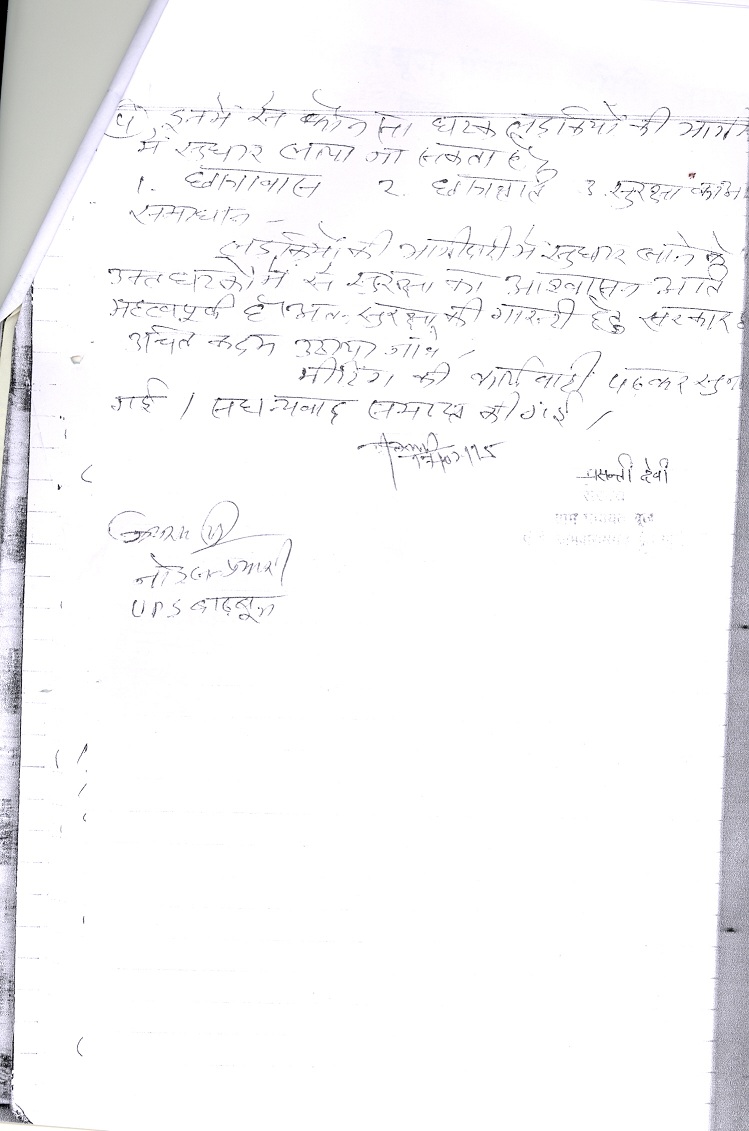 इनमें से कौन सा घटक लड़कियों की भागी
में सुधार लाया जा सकता है?
1. छात्रावास 2. छात्रवृति 3. सुरक्षा का
समाधान -
लड़कियों की भागीदारी में सुधार लाने के
उक्त घटकों में से सुरक्षा का आश्वासन अति
महत्वपूर्ण है। अतः सुरक्षा की गारन्टी हेतु सरकार
उचित कदम उठाया जाये।
मीटिंग की कार्यवाही पढ़कर सुन
गई। सधन्यवाद समाप्त की गई।
बसन्ती देवी
नोडल प्रभारी
UPS